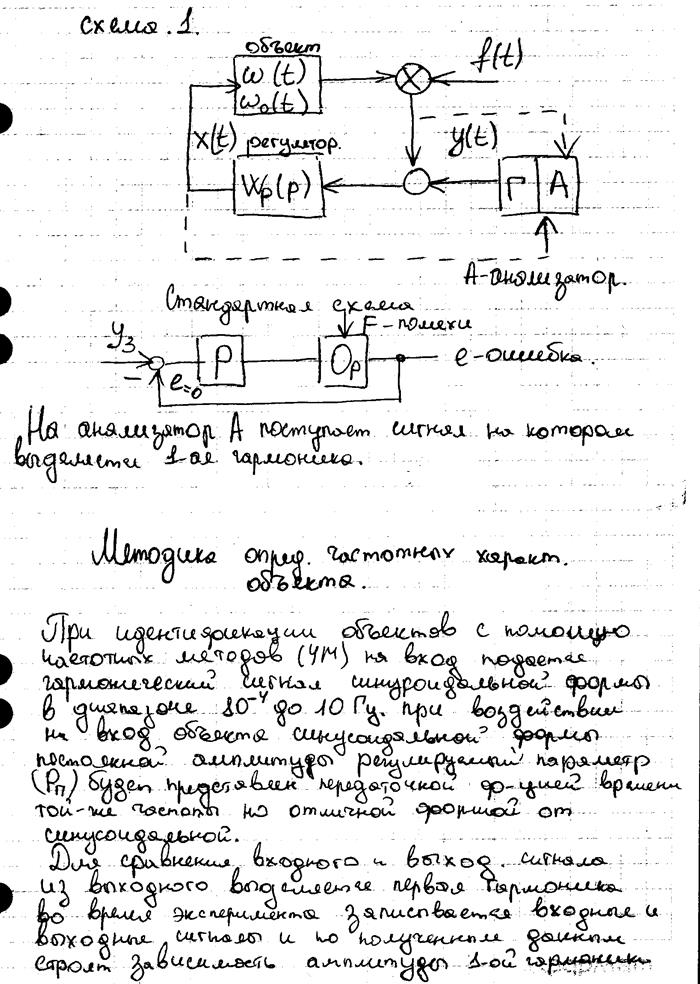 схема. 1.
объект
ω(t)
ω₀(t)
f(t)
x(t)
регулятор.
y(t)
Wp(p)
Г А
А-анализатор.
Стандартная схема
F-помехи
Уз
Р
Ор
е-ошибка.
-
e=0
На анализатор А поступает сигнал на котором
выделяется 1-ая гармоника.
Методика опред. частотных характ.
объекта.
При идентификации объектов с помощью
частотных методов (ЧМ) на вход подается
гармонический сигнал синусоидальной формы
в диапазоне 10⁻⁴ до 10 Гц. при воздействии
на вход объекта синусоидальной формы
постоянной амплитуды регулируемый параметр
(Рп) будет представлен передаточной ф-цией времени
той-же частоты но отличной формой от
синусоидальной.
Для сравнения входного и выход. сигнала
из выходного выделяется первая гармоника
во время эксперимента записывается входные и
выходные сигналы и по полученным данным
строят зависимость амплитуды 1-ой гармоники